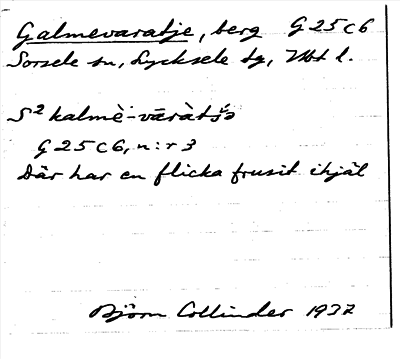 Galmevaratje, berg G 25 c 6
Sorsele sn, Lycksele tg, Vbt l.
S² kalmè-vāràtšə
G 25 C 6, n:r 3
Där har en flicka frusit ihjäl
Björn Collinder 1937